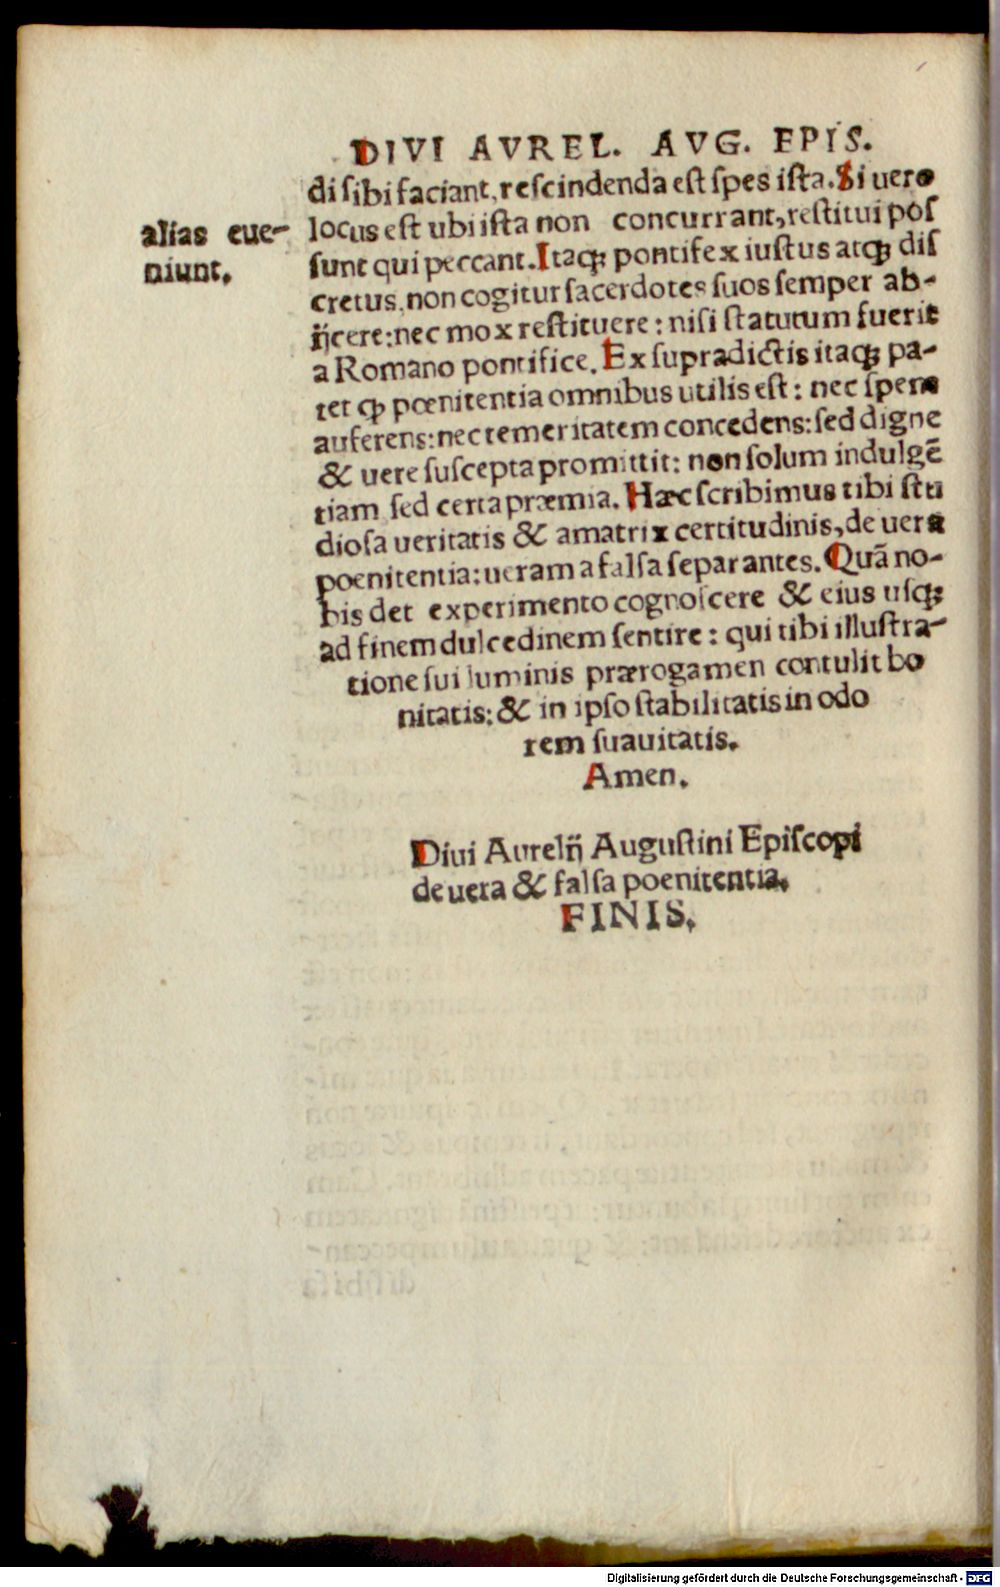 DIVI AVREL. AVG. EPIS.
di sibi faciant, rescindenda est spes ista. Si uero
alias eue-
niunt.
locus est ubi ista non concurrant, restitui pos
sunt qui peccant. Itaqꝫ pontifex iustus atqꝫ dis
cretus, non cogitur sacerdotes suos semper ab-
ijcere: nec mox restituere: nisi statutum fuerit
a Romano pontifice. Ex supradictis itaqꝫ pa-
tet ꝙ pœnitentia omnibus utilis est: nec spem
auferens: nec temeritatem concedens: sed digne
& uere suscepta promittit: non solum indulgē
tiam sed certa præmia. Hæc scribimus tibi stu
diosa ueritatis & amatrix certitudinis, de uera
poenitentia: ueram a falsa separantes. Quā no-
bis det experimento cognoscere & eius usqꝫ
ad finem dulcedinem sentire: qui tibi illustra-
tione sui luminis prærogamen contulit bo
nitatis: & in ipso stabilitatis in odo
rem suauitatis.
Amen.
Diui Aurelij Augustini Episcopi
de uera & falsa poenitentia.
FINIS.
Digitalisierung gefördert durch die Deutsche Forschungsgemeinschaft - DFG